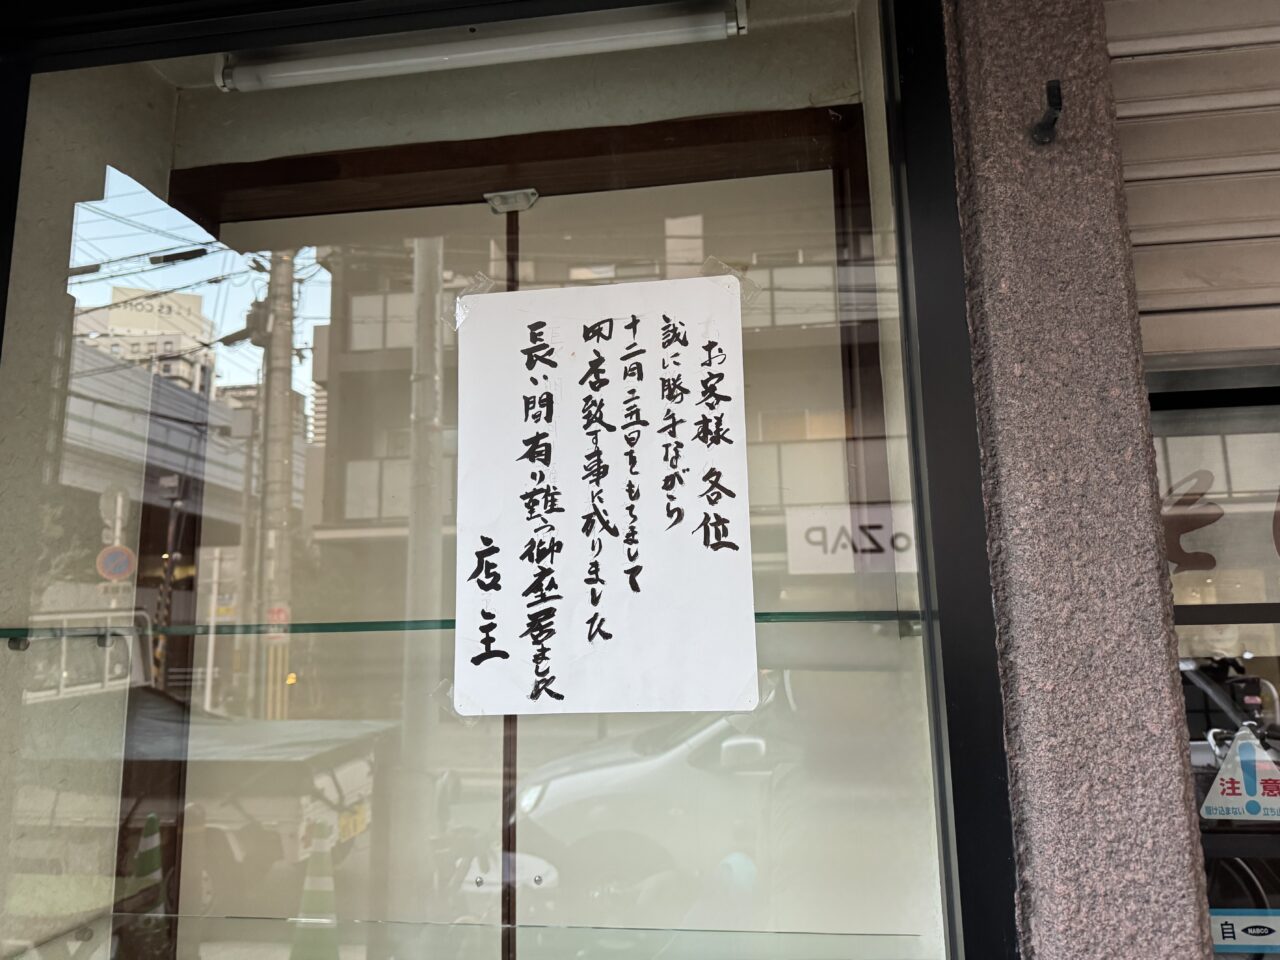 お客様 各位
誠に勝手ながら
十二月二五日をもちまして
閉店致す事に成りました
長い間有り難う御座居ました
店主
ZAP
注意
駆け込まない
立ち止
自
NABCO